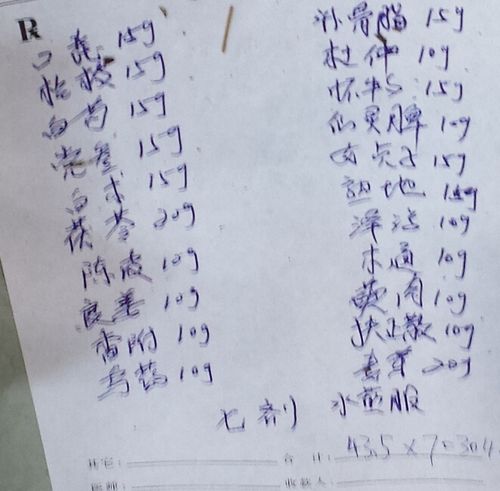 R
口芪 15g
桂枝 15g
白芍 15g
党参 15g
白术 15g
茯苓 20g
陈皮 10g
良姜 10g
香附 10g
乌药 10g
补骨脂 15g
杜仲 10g
怀牛 15g
仙灵脾 10g
女贞子 15g
熟地 15g
泽泻 10g
木通 10g
萸肉 10g
10g
20g
七剂 水煎服
合 计: 43.5×7=304